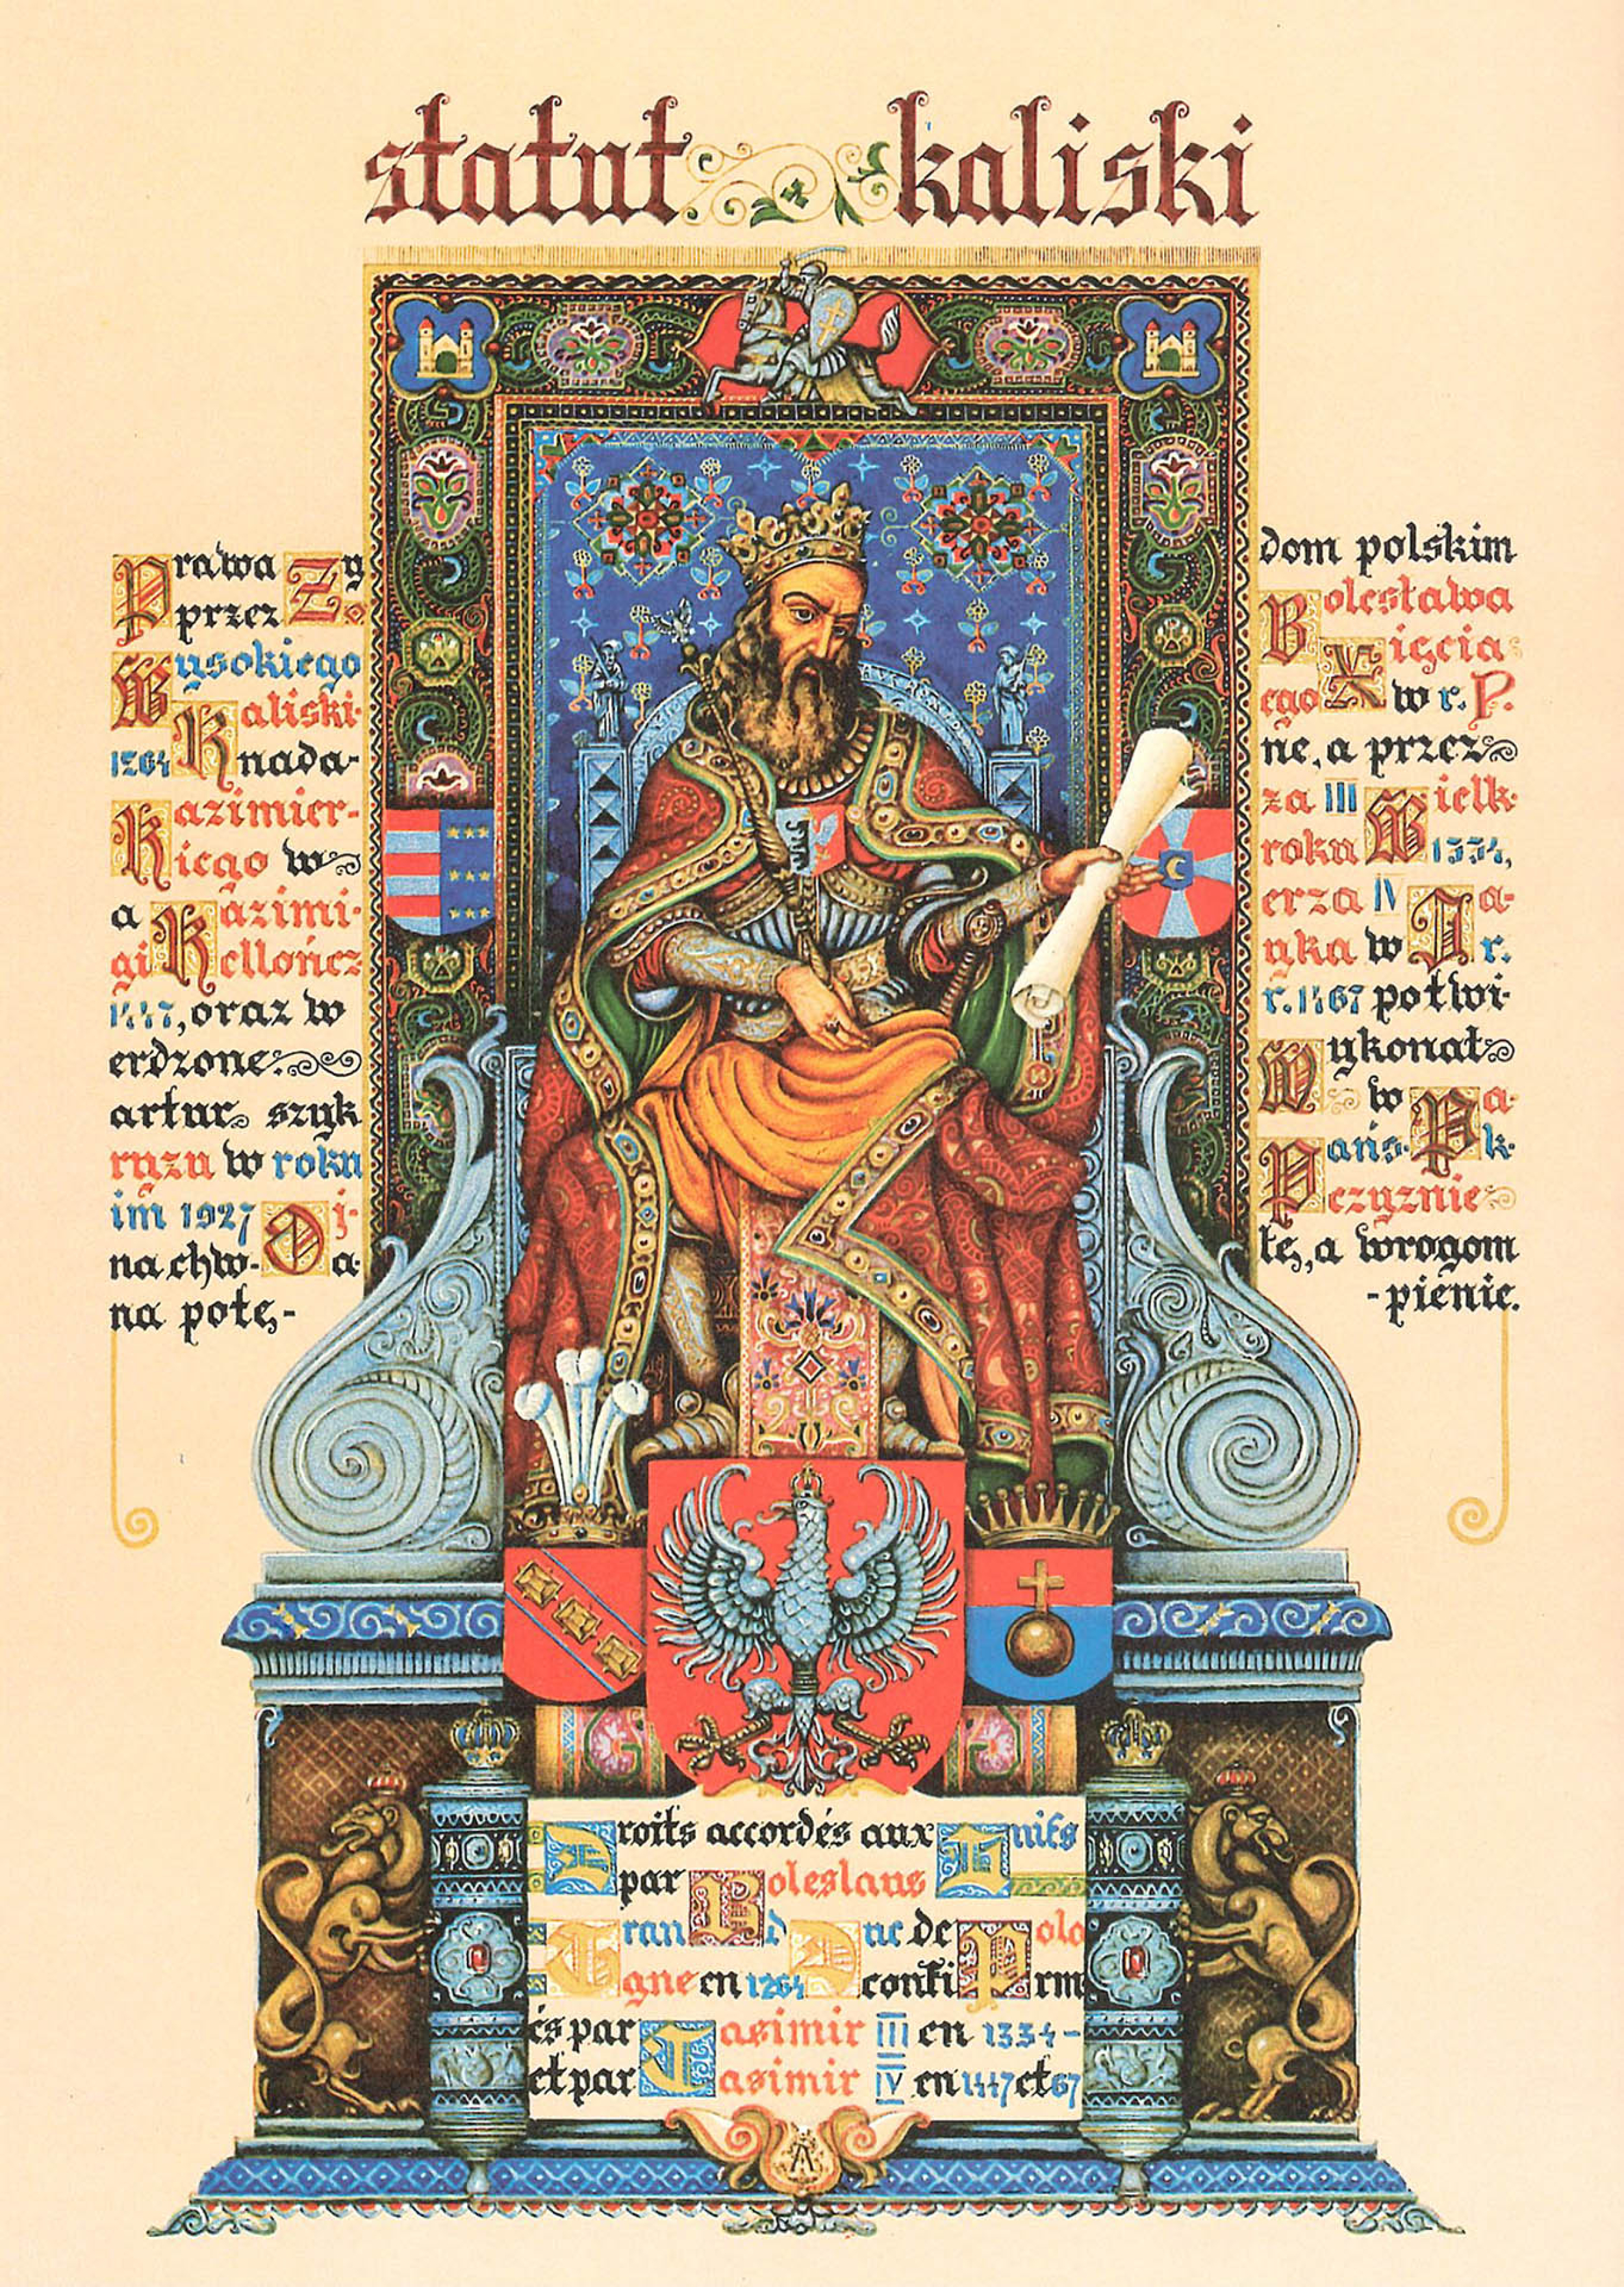 statut kaliski
Prawa Zy dom polskim
przez Bolesława
Wysokiego Xięcia
Kaliski- ego w r. P.
1264 nada- ne, a przez
Kazimier- za III Wielk-
iego w roku 1334,
a Kazimi- erza IV Ja-
gi ellończ yka w r.
1447, oraz w r. 1467 potwi-
erdzone: Wykonał
artur szyk w Pa-
ryzu w roku Pańs- k-
im 1927 Oj- czyznie
na chw- a łę, a wrogom
na potę- -pienie.
Droits accordés aux Juifs
par Boleslaus
Grand Duc de Polo
gne en 1264 confirm
és par Casimir III en 1334-
et par Casimir IV en 1447 et 67